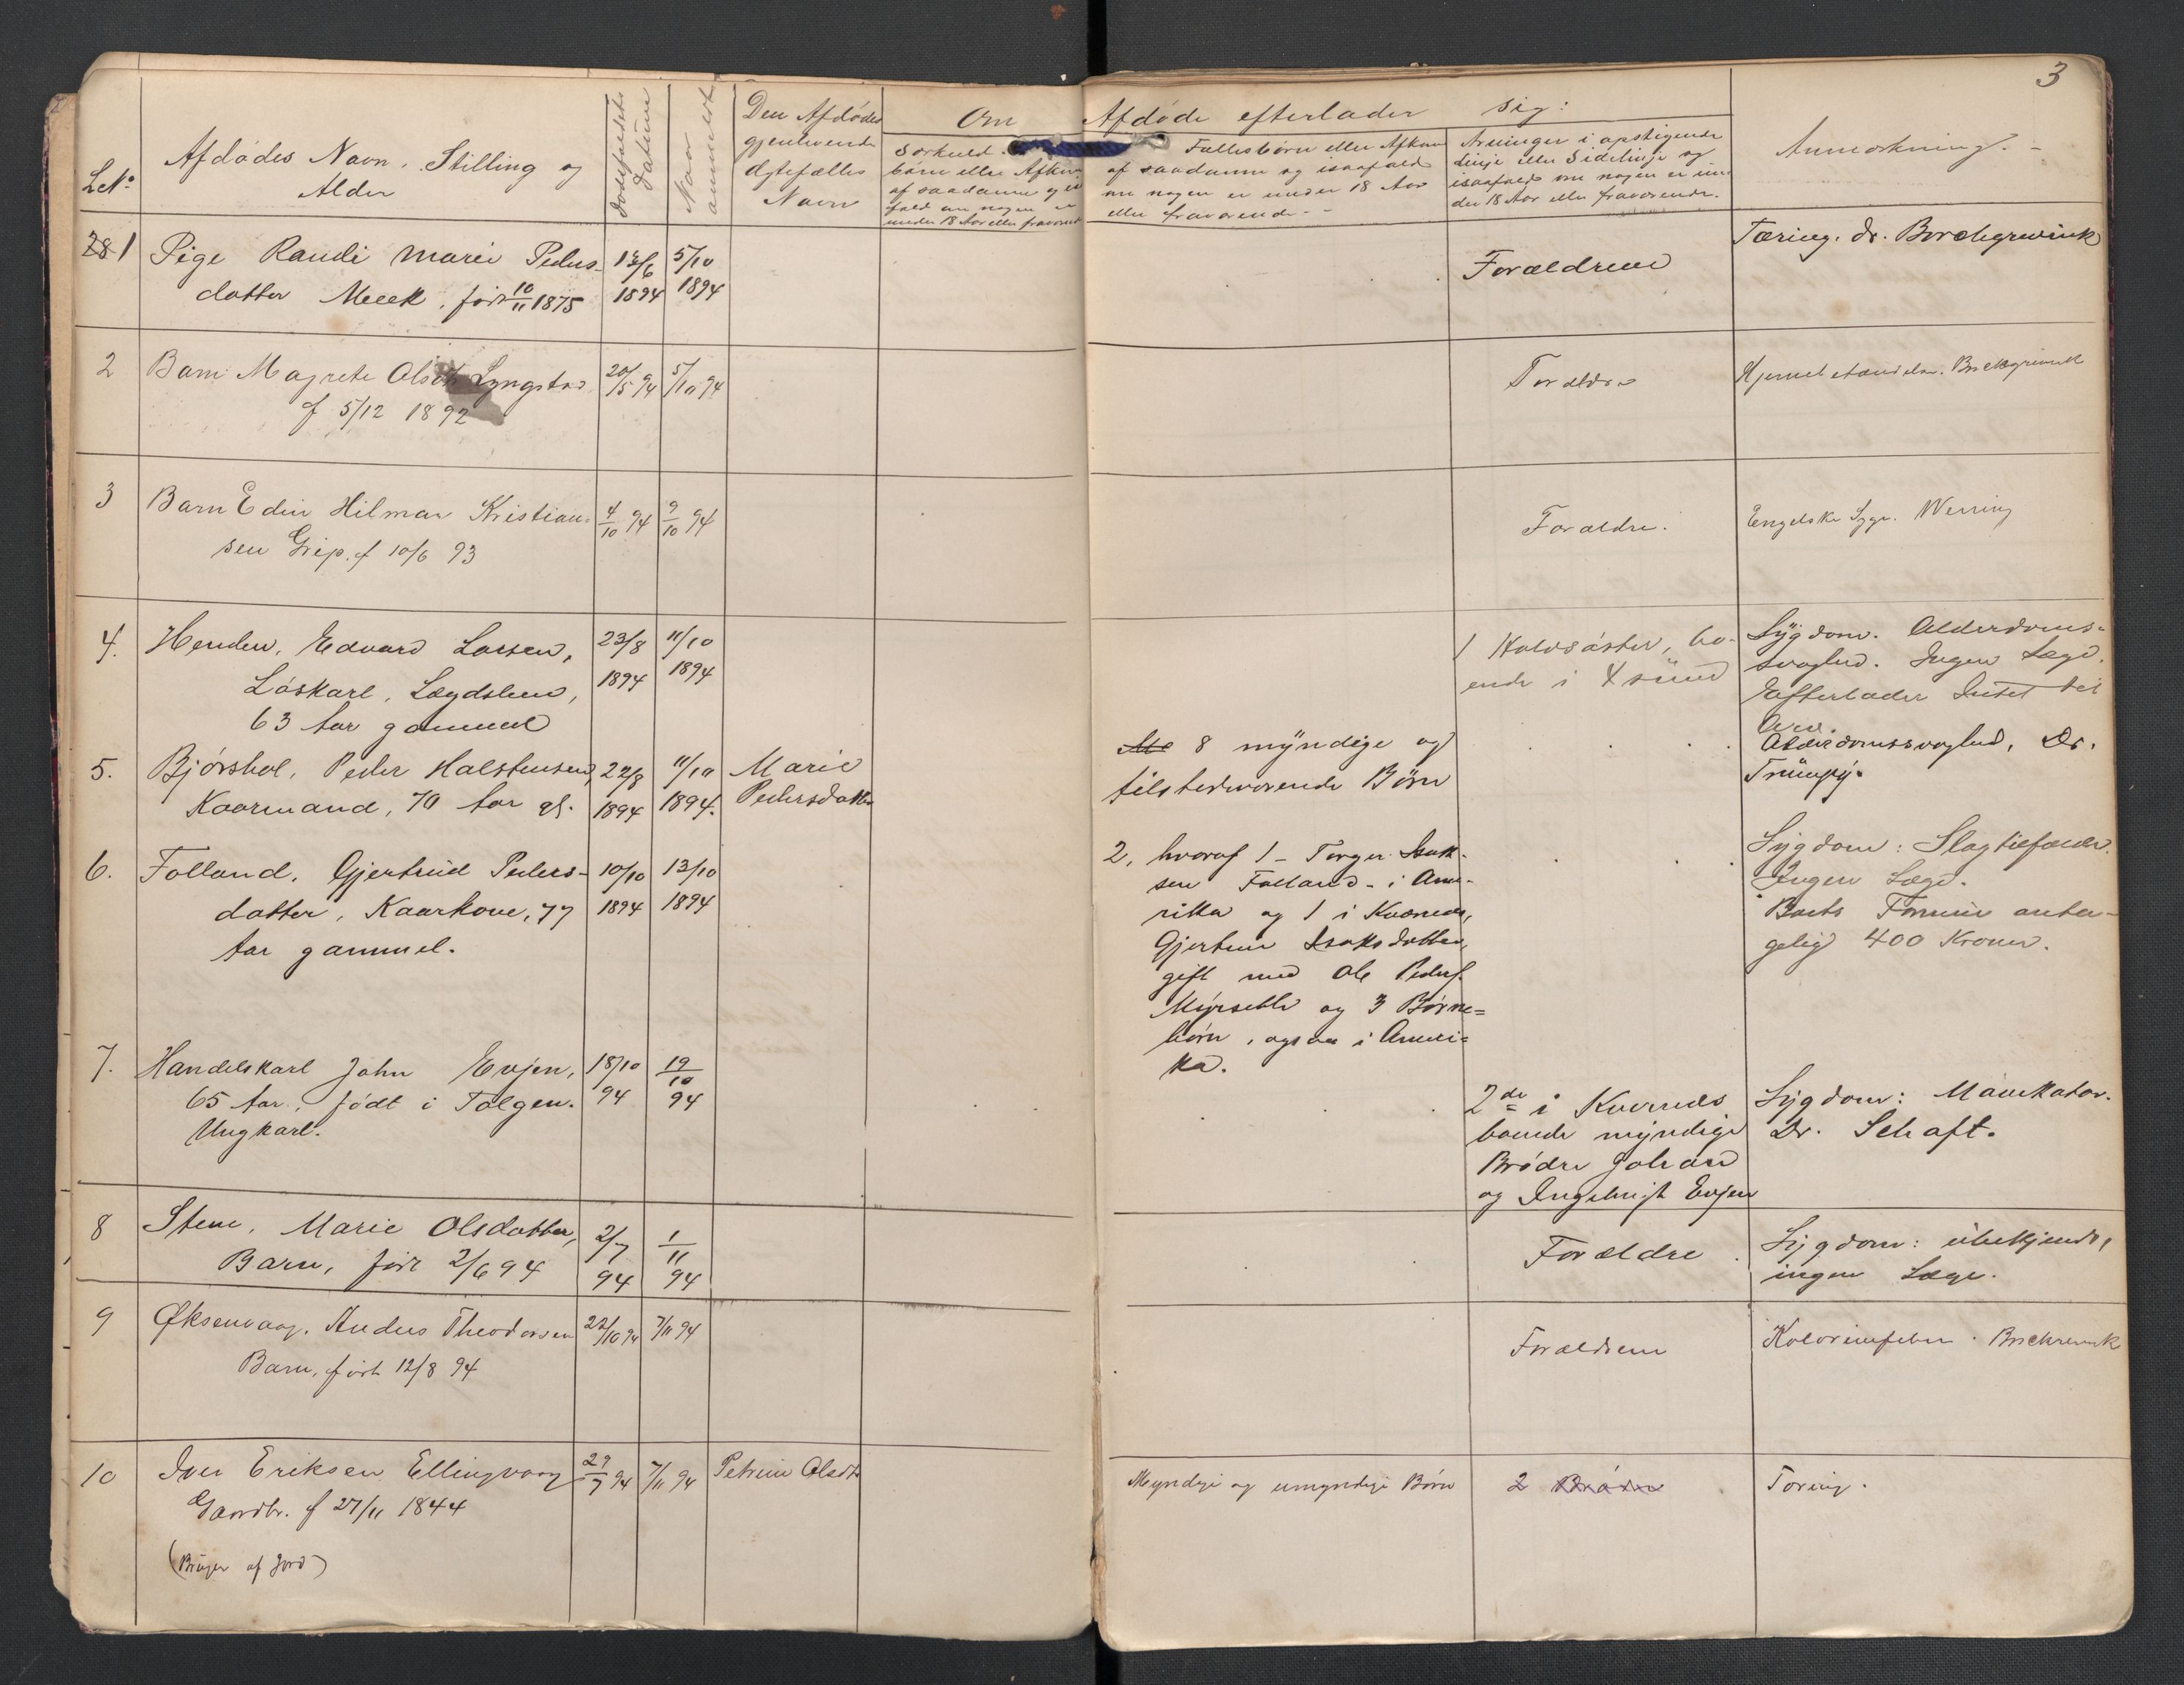 3
L.No.
Afdødes Navn, Stilling og
Alder
Dødsfaldets
Datum
Naar
anmeldt
Den Afdødes
gjenlevende
Ægtefælles
Navn
Om Afdøde efterlader sig:
Særkuld-
børn eller Afkom
af saadanne og i
fald om nogen er
under 18 Aar eller fraværende
Fællesbørn eller Afkom
af saadanne og isaafald
om nogen er under 18 Aar
eller fraværende. -
Arvinger i opstigende
Linje eller Sidelinje og
isaafald om nogen er un-
der 18 Aar eller fraværende.
Anmærkning. -
28 1 Pige Randi Marie Peders- 13/6 5/10 Forældrene Tæring. Dr. Borchgrevink
datter Meek, født 10/11 1875 1894 1894
2 Barn Magrete Olsdt Lyngstad 20/5 94 5/10 94 Forældre
f 5/12 1892
3 Barn Edin Hilmar Kristian- 4/10 94 9/10 94 Forældre. Engelske Syge. Werring
sen Grip. f 10/6 93
4. Henden, Edvard Larsen, 23/8 11/10 1 Halvsøster, bo- Sygdom. Alderdoms-
Løskarl, Lægdslem, 1894 1894 ende i Xsund svaghed. Ingen Læge.
63 Aar gammel Efterlader Intet til
Arv.
5. Bjørshol, Peder Halstensen, 22/8 11/10 Marie 8 myndige og Alderdomssvaghed, Dr.
Kaarmand, 70 Aar gl. 1894 1894. Pedersdatter tilstedeværende Børn Trümpy.
6. Folland, Gjertrud Peders- 10/10 13/10 2, hvoraf 1 - Torger Isak- Sygdom: Slagtilfælde.
datter, Kaarkone, 77 1894 1894 sen Folland - i Ame- Ingen Læge.
Aar gammel. rika og 1 i Kværnes, Boets Formue anta-
Gjertine Isaksdatter, gelig 400 Kroner.
gift med Ole Peders.
og 3 Børne-
børn, ogsaa i Ameri-
ka.
7. Handelskarl John Evjen, 18/10 19/10 2de i Kvernes Sygdom: Mavekatar.
65 Aar, født i Tolgen. 94 94 boende myndige Dr. Schaft.
Ungkarl. Brødre Johan
og Ingebrigt Evjen
8 Stene, Marie Olsdatter, 2/7 1/11 Forældre Sygdom: übekjendt,
Barn, født 2/6 94 94 94 ingen Læge.
9 Øksenvaag, Anders Theodorsen 22/10 94 7/11 94 Forældrene
Barn, født 12/8 94
10 Iver Eriksen Ellingvaag 29/7 94 7/11 94 Petrine Olsdt Myndige og umyndige Børn 2 Brødre Tæring.
Gaardbr. f 27/11 1844
(Bruger af Jord)